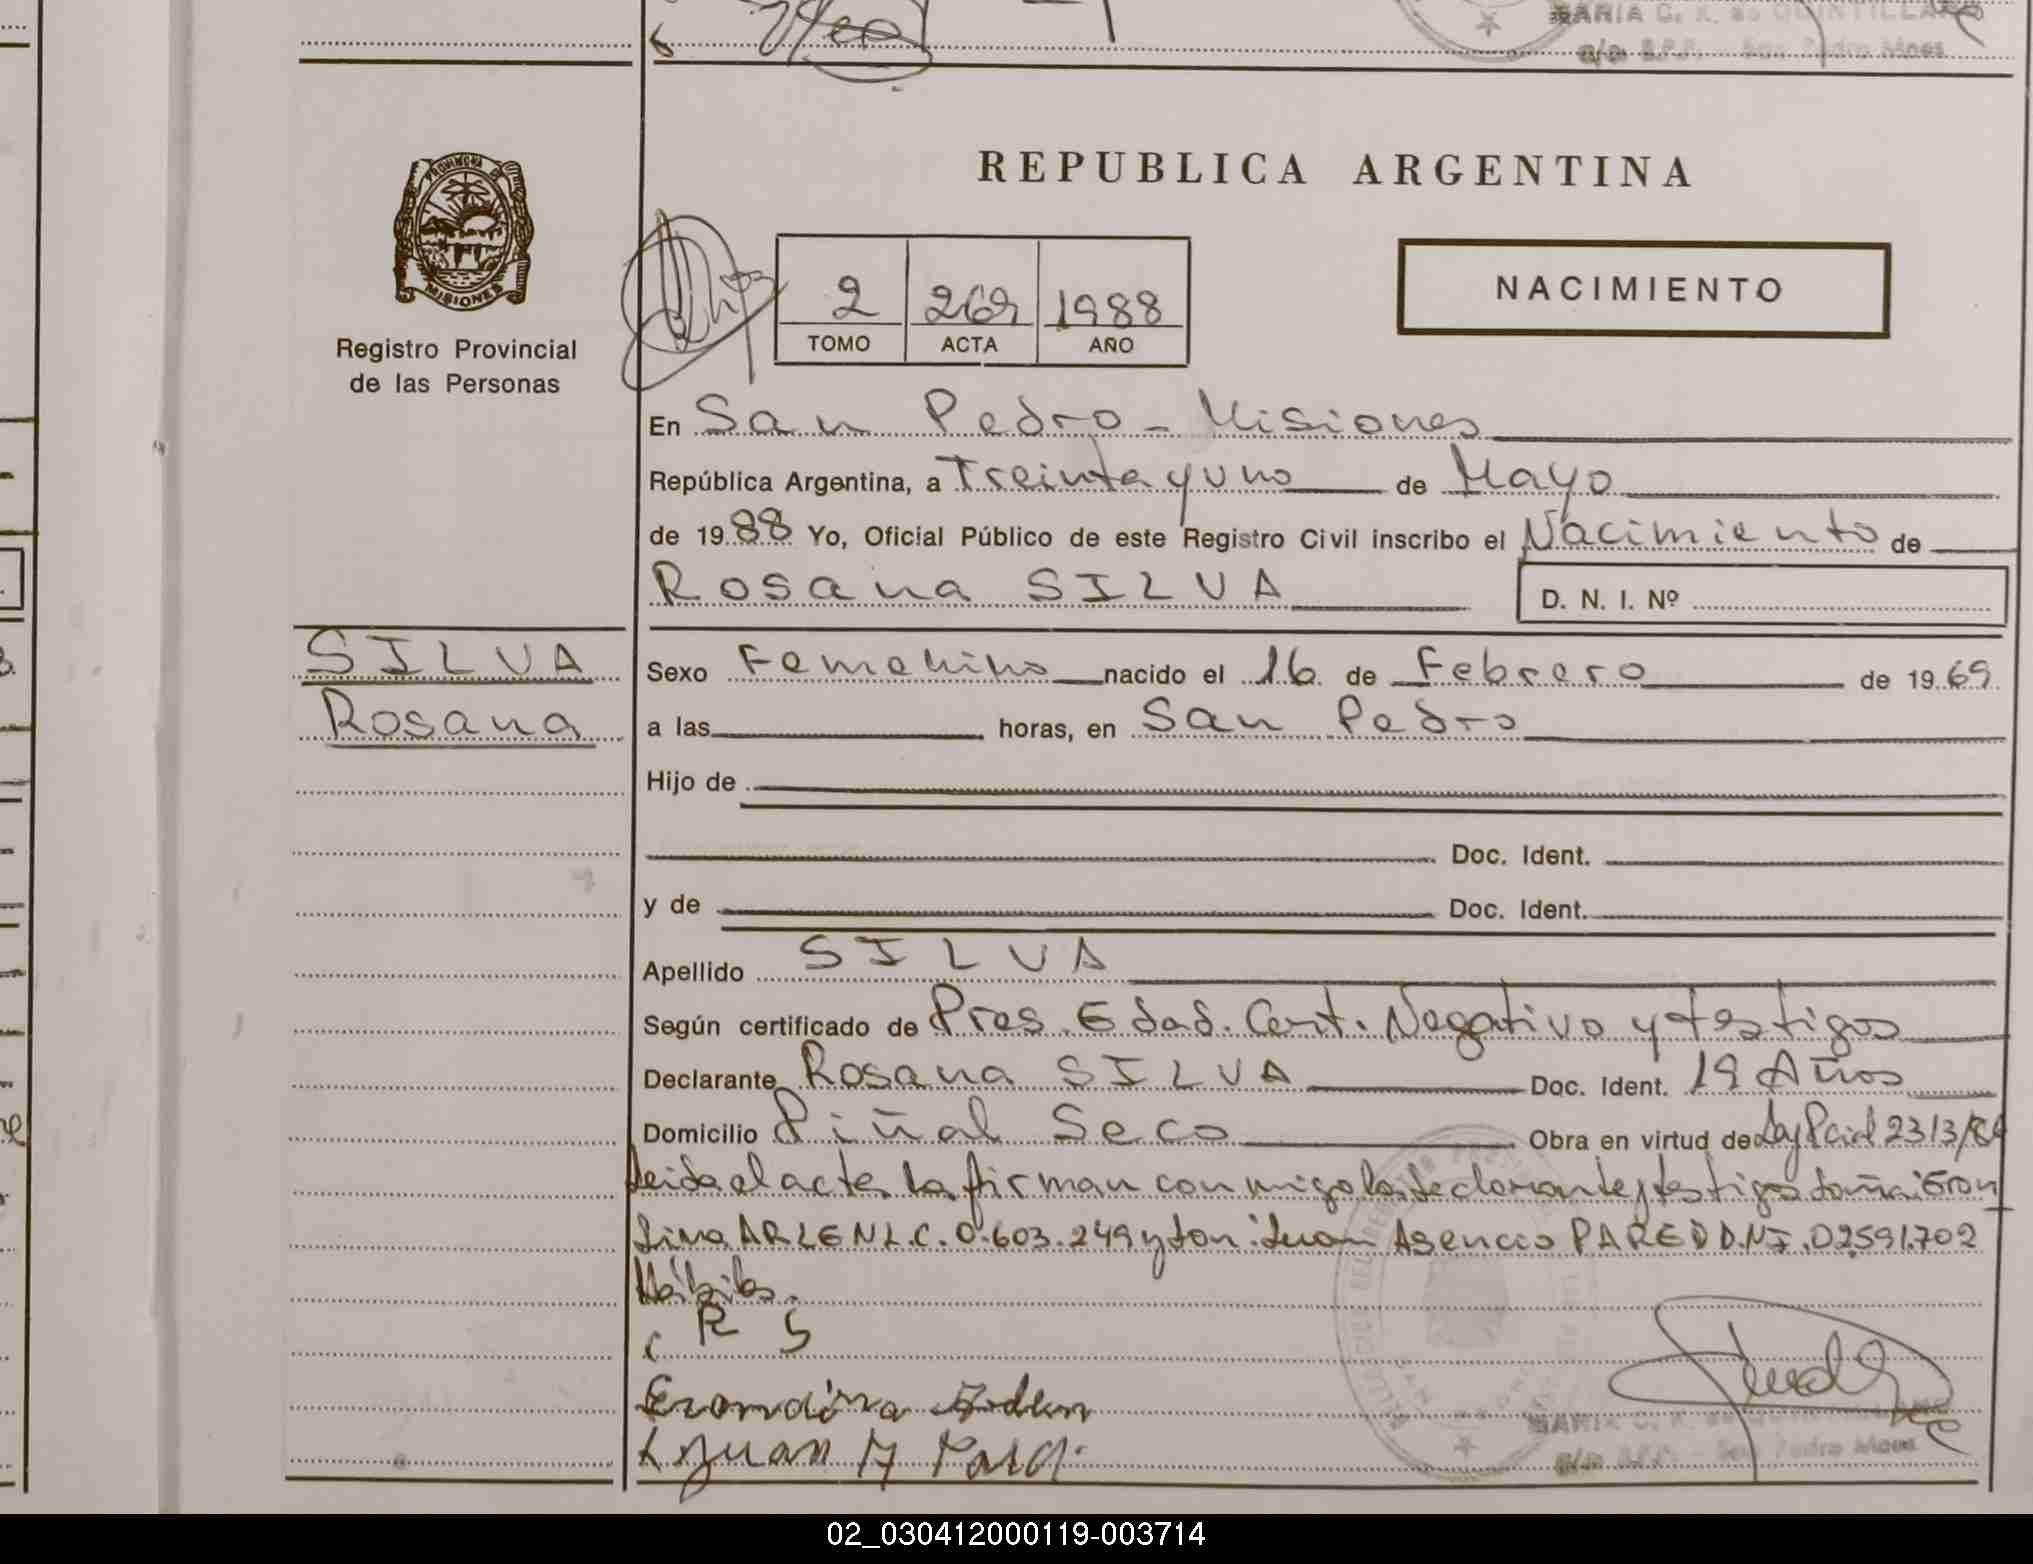 MARIA C. K. de QUINTILLANO
a/c S.P.P. - San Pedro Mnes
PROVINCIA DE
MISIONES
Registro Provincial
de las Personas
REPUBLICA ARGENTINA
2 269 1988
TOMO ACTA AÑO
NACIMIENTO
En San Pedro - Misiones
República Argentina, a Treinta y uno de Mayo
de 1988 Yo, Oficial Público de este Registro Civil inscribo el Nacimiento de
Rosana SILVA D. N. I. Nº
SILVA
Rosana
Sexo Femenino nacido el 16 de Febrero de 1969
a las horas, en San Pedro
Hijo de
Doc. Ident.
y de Doc. Ident.
Apellido SILVA
Según certificado de Pres. Edad. Cert. Negativo y testigos
Declarante Rosana SILVA Doc. Ident. 19 Años
Domicilio Piñal Seco Obra en virtud de Ley Pcial 2313/86
Leida el acta la firman conmigo la declarante y testigos doña: Eron
dina ARLEN L.C. 0.603.249 y don: Juan Asencio PARED D.N.I. 02.591.702
Hábiles.
R S
Erondina Arlen
Juan A Pared
MARIA C. K. de
a/c S.P.P. - San Pedro Mnes
02_030412000119-003714